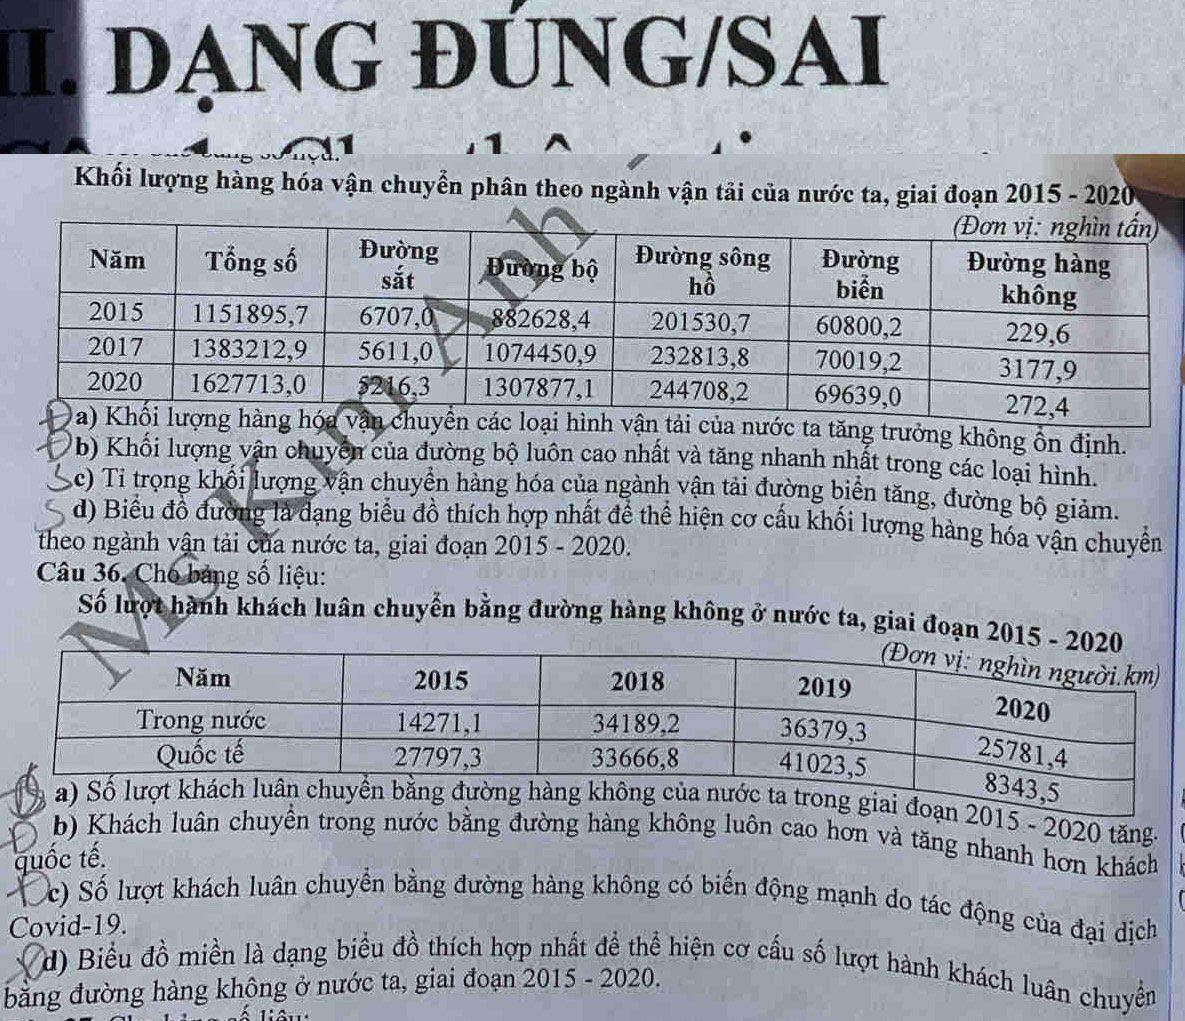 II. DẠNG ĐÚNG/SAI
Khối lượng hàng hóa vận chuyển phân theo ngành vận tải của nước ta, giai đoạn 2015 - 2020
(Đơn vị: nghìn tấn)
Năm Tổng số Đường sắt Đường bộ Đường sông hồ Đường biển Đường hàng không
2015 1151895,7 6707,0 882628,4 201530,7 60800,2 229,6
2017 1383212,9 5611,0 1074450,9 232813,8 70019,2 3177,9
2020 1627713,0 5216,3 1307877,1 244708,2 69639,0 272,4
Đ a) Khối lượng hàng hóa vận chuyển các loại hình vận tải của nước ta tăng trưởng không ổn định.
Đ b) Khối lượng vận chuyển của đường bộ luôn cao nhất và tăng nhanh nhất trong các loại hình.
S c) Tỉ trọng khối lượng vận chuyển hàng hóa của ngành vận tải đường biển tăng, đường bộ giảm.
S d) Biểu đồ đường là dạng biểu đồ thích hợp nhất để thể hiện cơ cấu khối lượng hàng hóa vận chuyển
theo ngành vận tải của nước ta, giai đoạn 2015 - 2020.
Câu 36. Cho bảng số liệu:
Số lượt hành khách luân chuyển bằng đường hàng không ở nước ta, giai đoạn 2015 - 2020
(Đơn vị: nghìn người.km)
Năm 2015 2018 2019 2020
Trong nước 14271,1 34189,2 36379,3 25781,4
Quốc tế 27797,3 33666,8 41023,5 8343,5
a) Số lượt khách luân chuyển bằng đường hàng không của nước ta trong giai đoạn 2015 - 2020 tăng.
b) Khách luân chuyển trong nước bằng đường hàng không luôn cao hơn và tăng nhanh hơn khách
quốc tế.
c) Số lượt khách luân chuyển bằng đường hàng không có biến động mạnh do tác động của đại dịch
Covid-19.
d) Biểu đồ miền là dạng biểu đồ thích hợp nhất để thể hiện cơ cấu số lượt hành khách luân chuyển
bằng đường hàng không ở nước ta, giai đoạn 2015 - 2020.
Ms Kim Anh